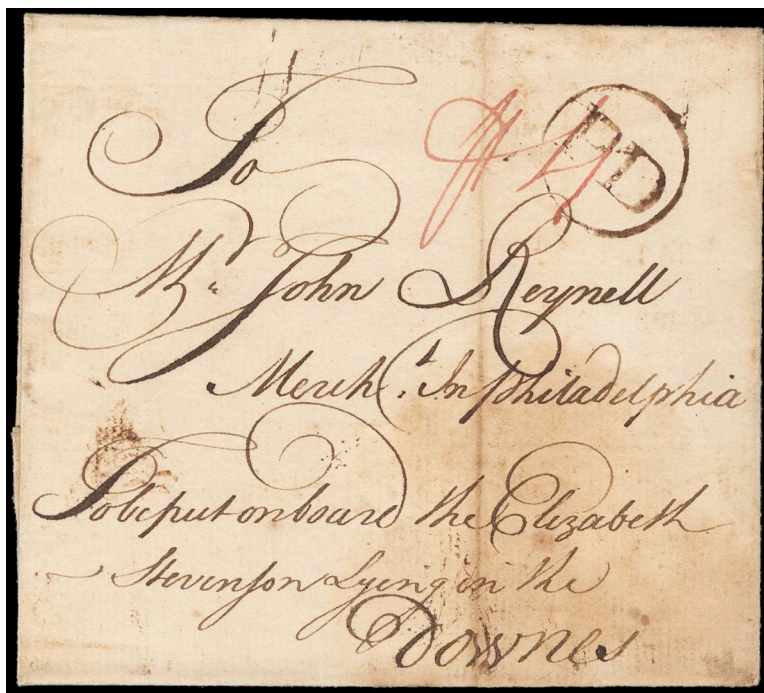 To
PD
Mr. John Reynell
Mercht. In Philadelphia
To be put on board the Elizabeth
Stevenson Lyeing in the
Downes